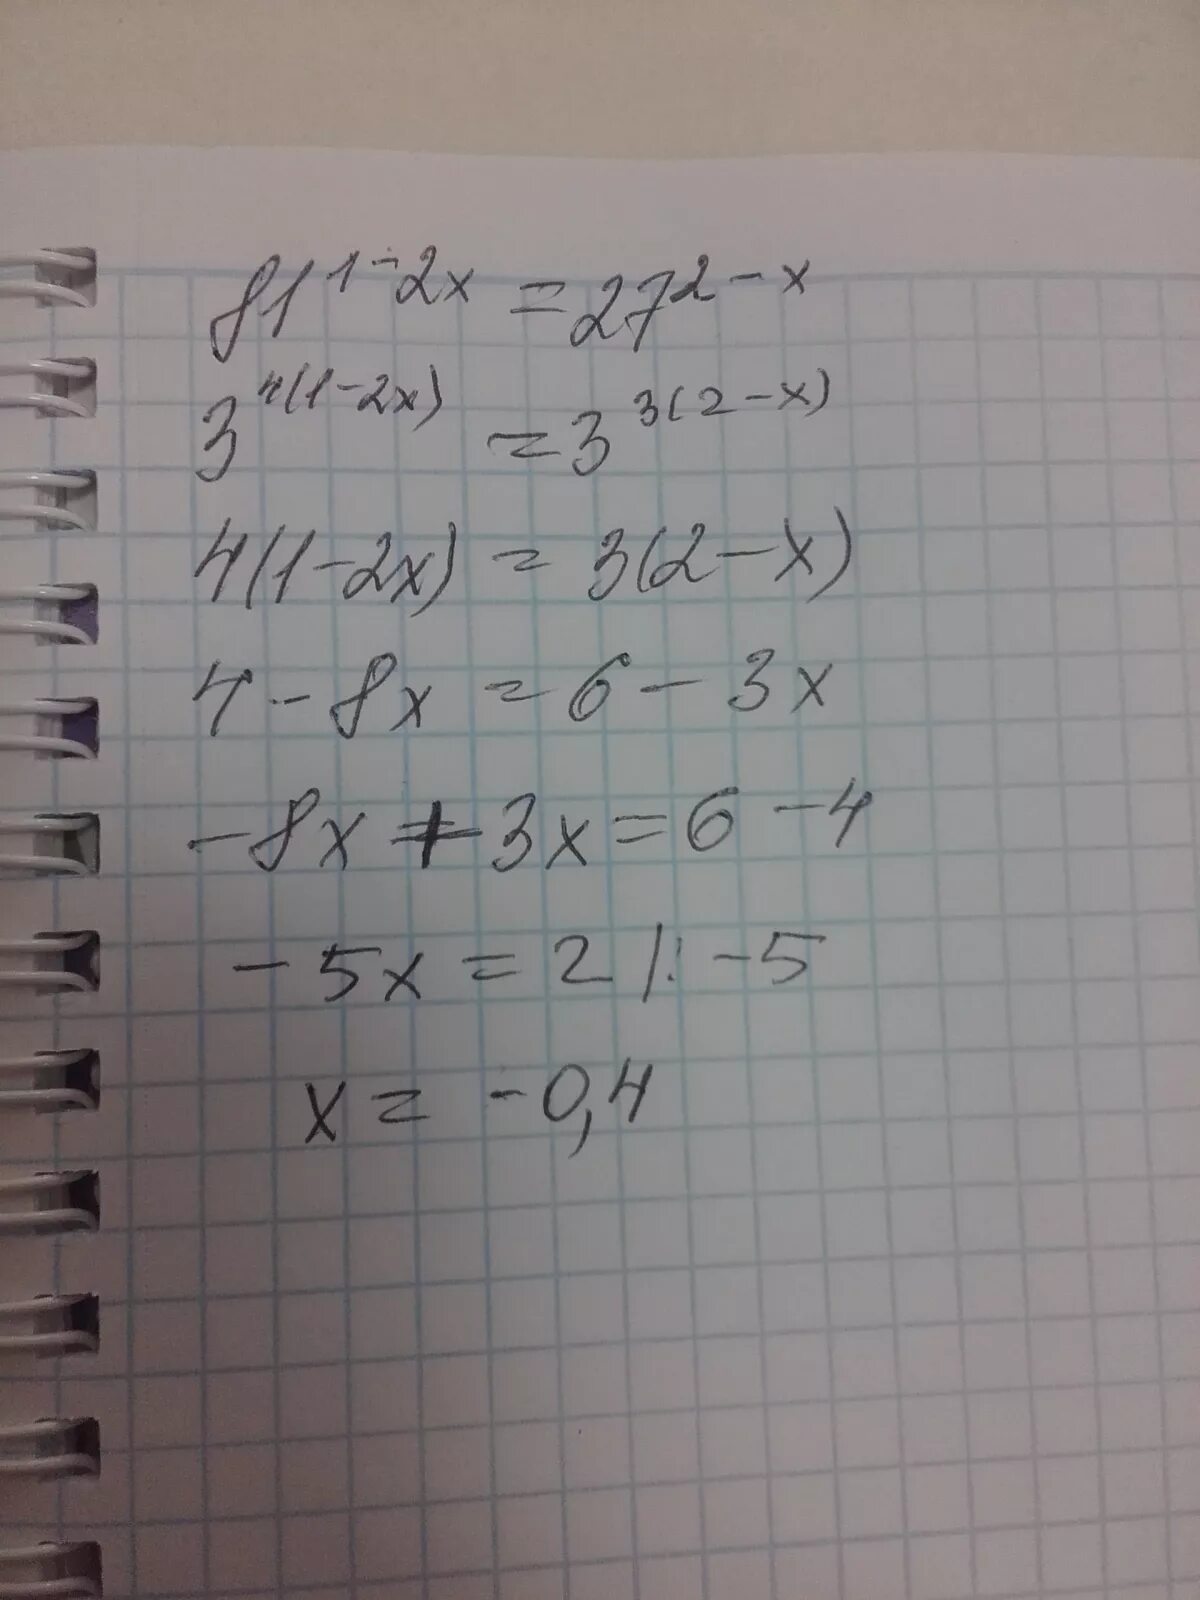 81^1-2x = 27^2-x
3^4(1-2x) = 3^3(2-x)
4(1-2x) = 3(2-x)
4-8x = 6-3x
-8x+3x=6-4
-5x=2 |: -5
x= -0,4